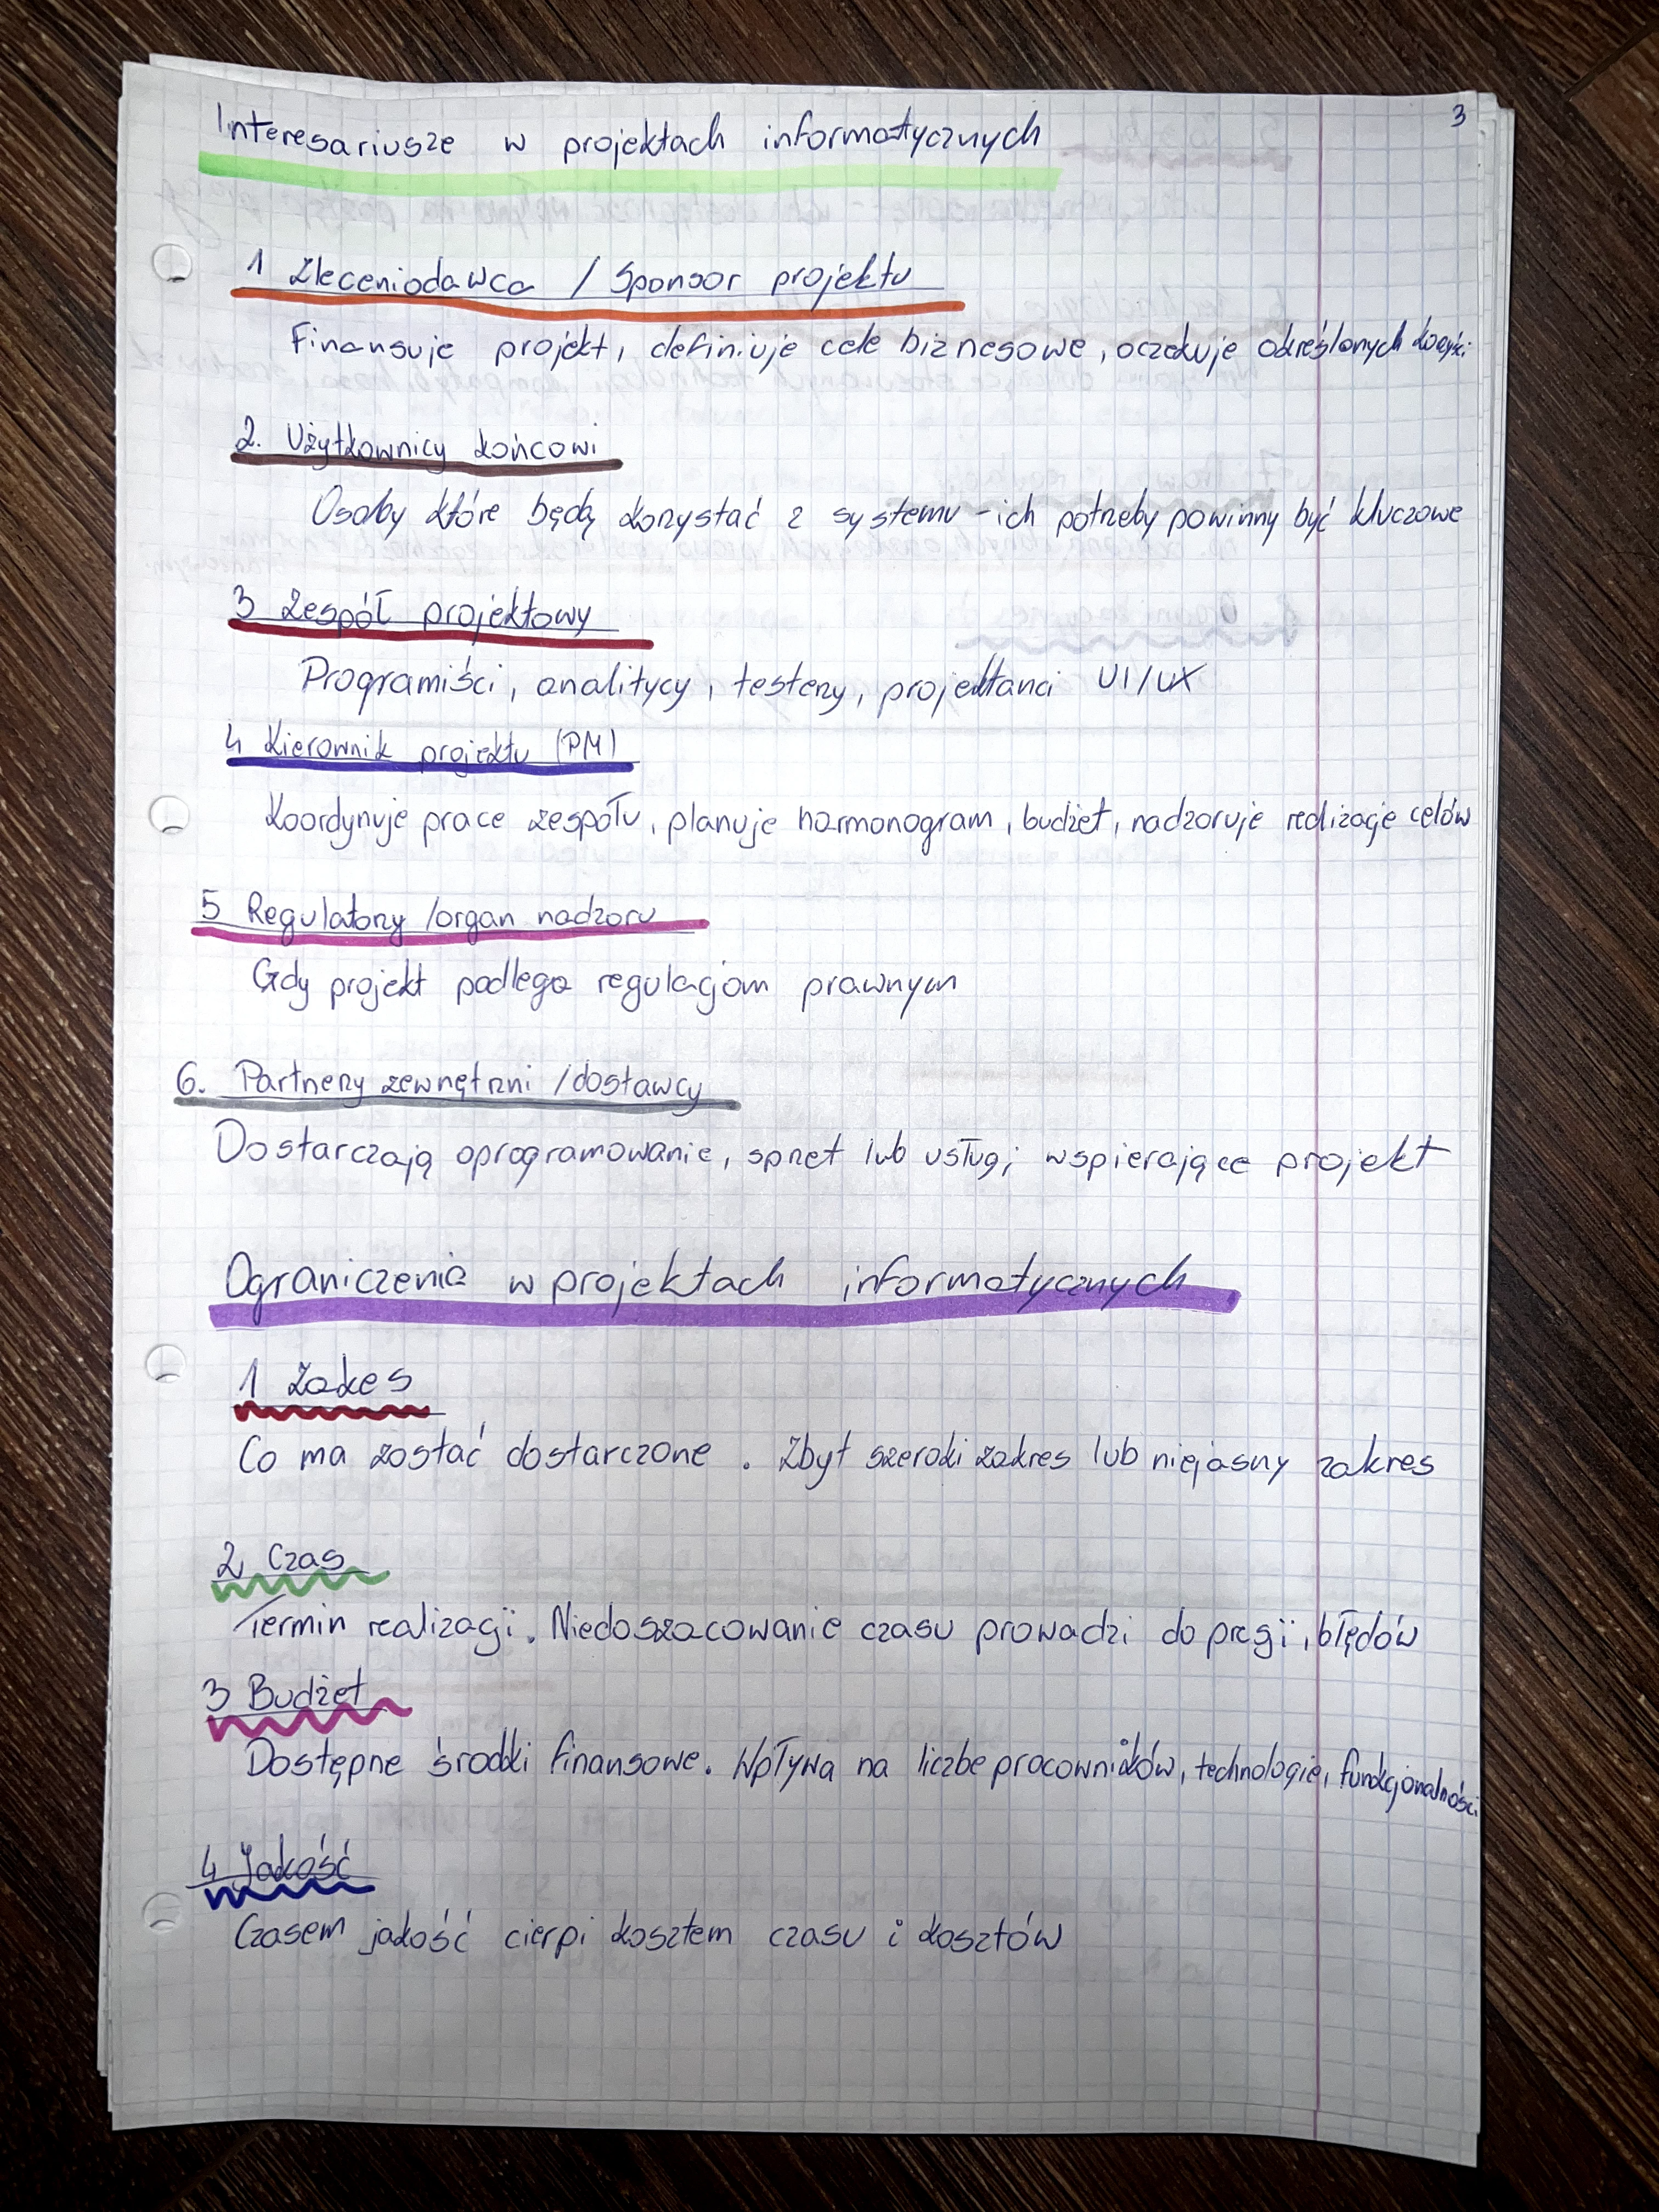 3
Interesariusze w projektach informatycznych
1 Zleceniodawca / Sponsor projektu
Finansuje projekt, definiuje cele biznesowe, oczekuje określonych
2. Użytkownicy końcowi
Osoby które będą korzystać z systemu - ich potrzeby powinny być kluczowe
3 Zespół projektowy
Programiści, analitycy, testerzy, projektanci UI/UX
4 Kierownik projektu (PM)
Koordynuje prace zespołu, planuje harmonogram, budżet, nadzoruje realizacje celów
5 Regulatorzy /organ nadzoru
Gdy projekt podlega regulacjom prawnym
6. Partnerzy zewnętrzni /dostawcy
Dostarczają oprogramowanie, sprzet lub usługi wspierające projekt
Ograniczenia w projektach informatycznych
1 Zakes
Co ma zostać dostarczone . Zbyt szeroki zakres lub niejasny zakres
2. Czas
Termin realizacji. Niedoszacowanie czasu prowadzi do presji, błędów
3 Budżet
Dostępne środki finansowe. Wpływa na liczbe pracowników, technologie, funkcjonalności
4 Jakość
Czasem jakość cierpi kosztem czasu i kosztów